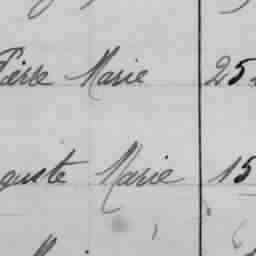 Pierre Marie 25
guste Marie 15